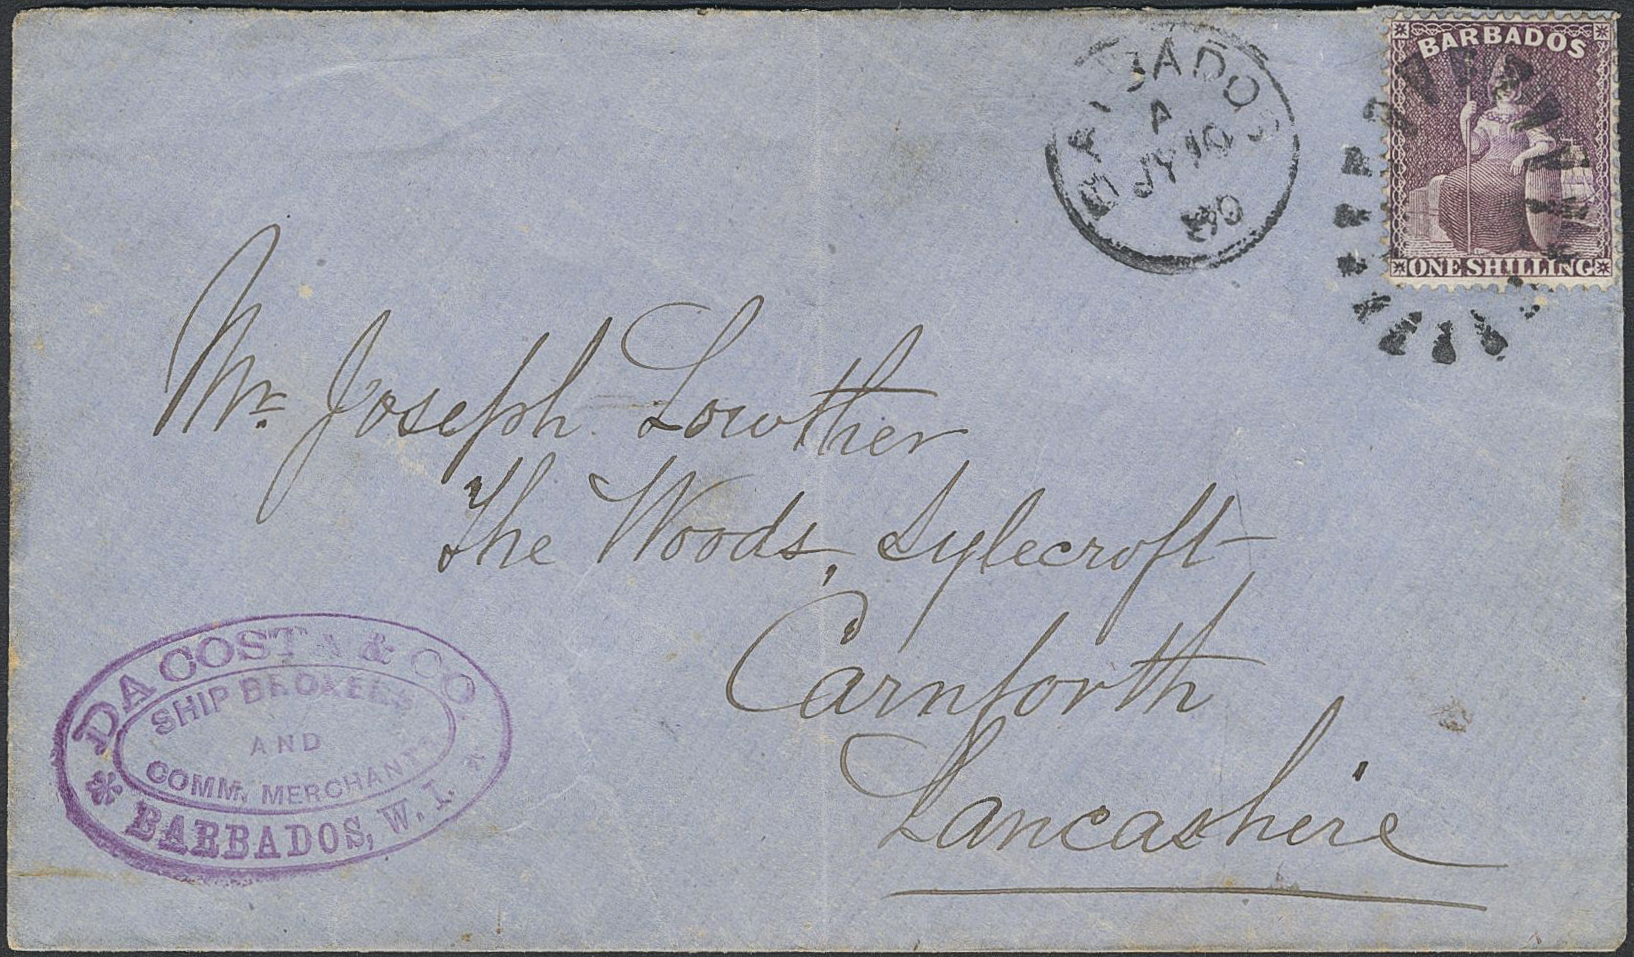 BARBADOS
A
JY 10
80
BARBADOS
ONE SHILLING
Mr. Joseph Lowther
The Woods, Sylecroft
Carnforth
Lancashire
DA COSTA & CO.
SHIP BROKERS
AND
COMM. MERCHANTS
BARBADOS, W. I.